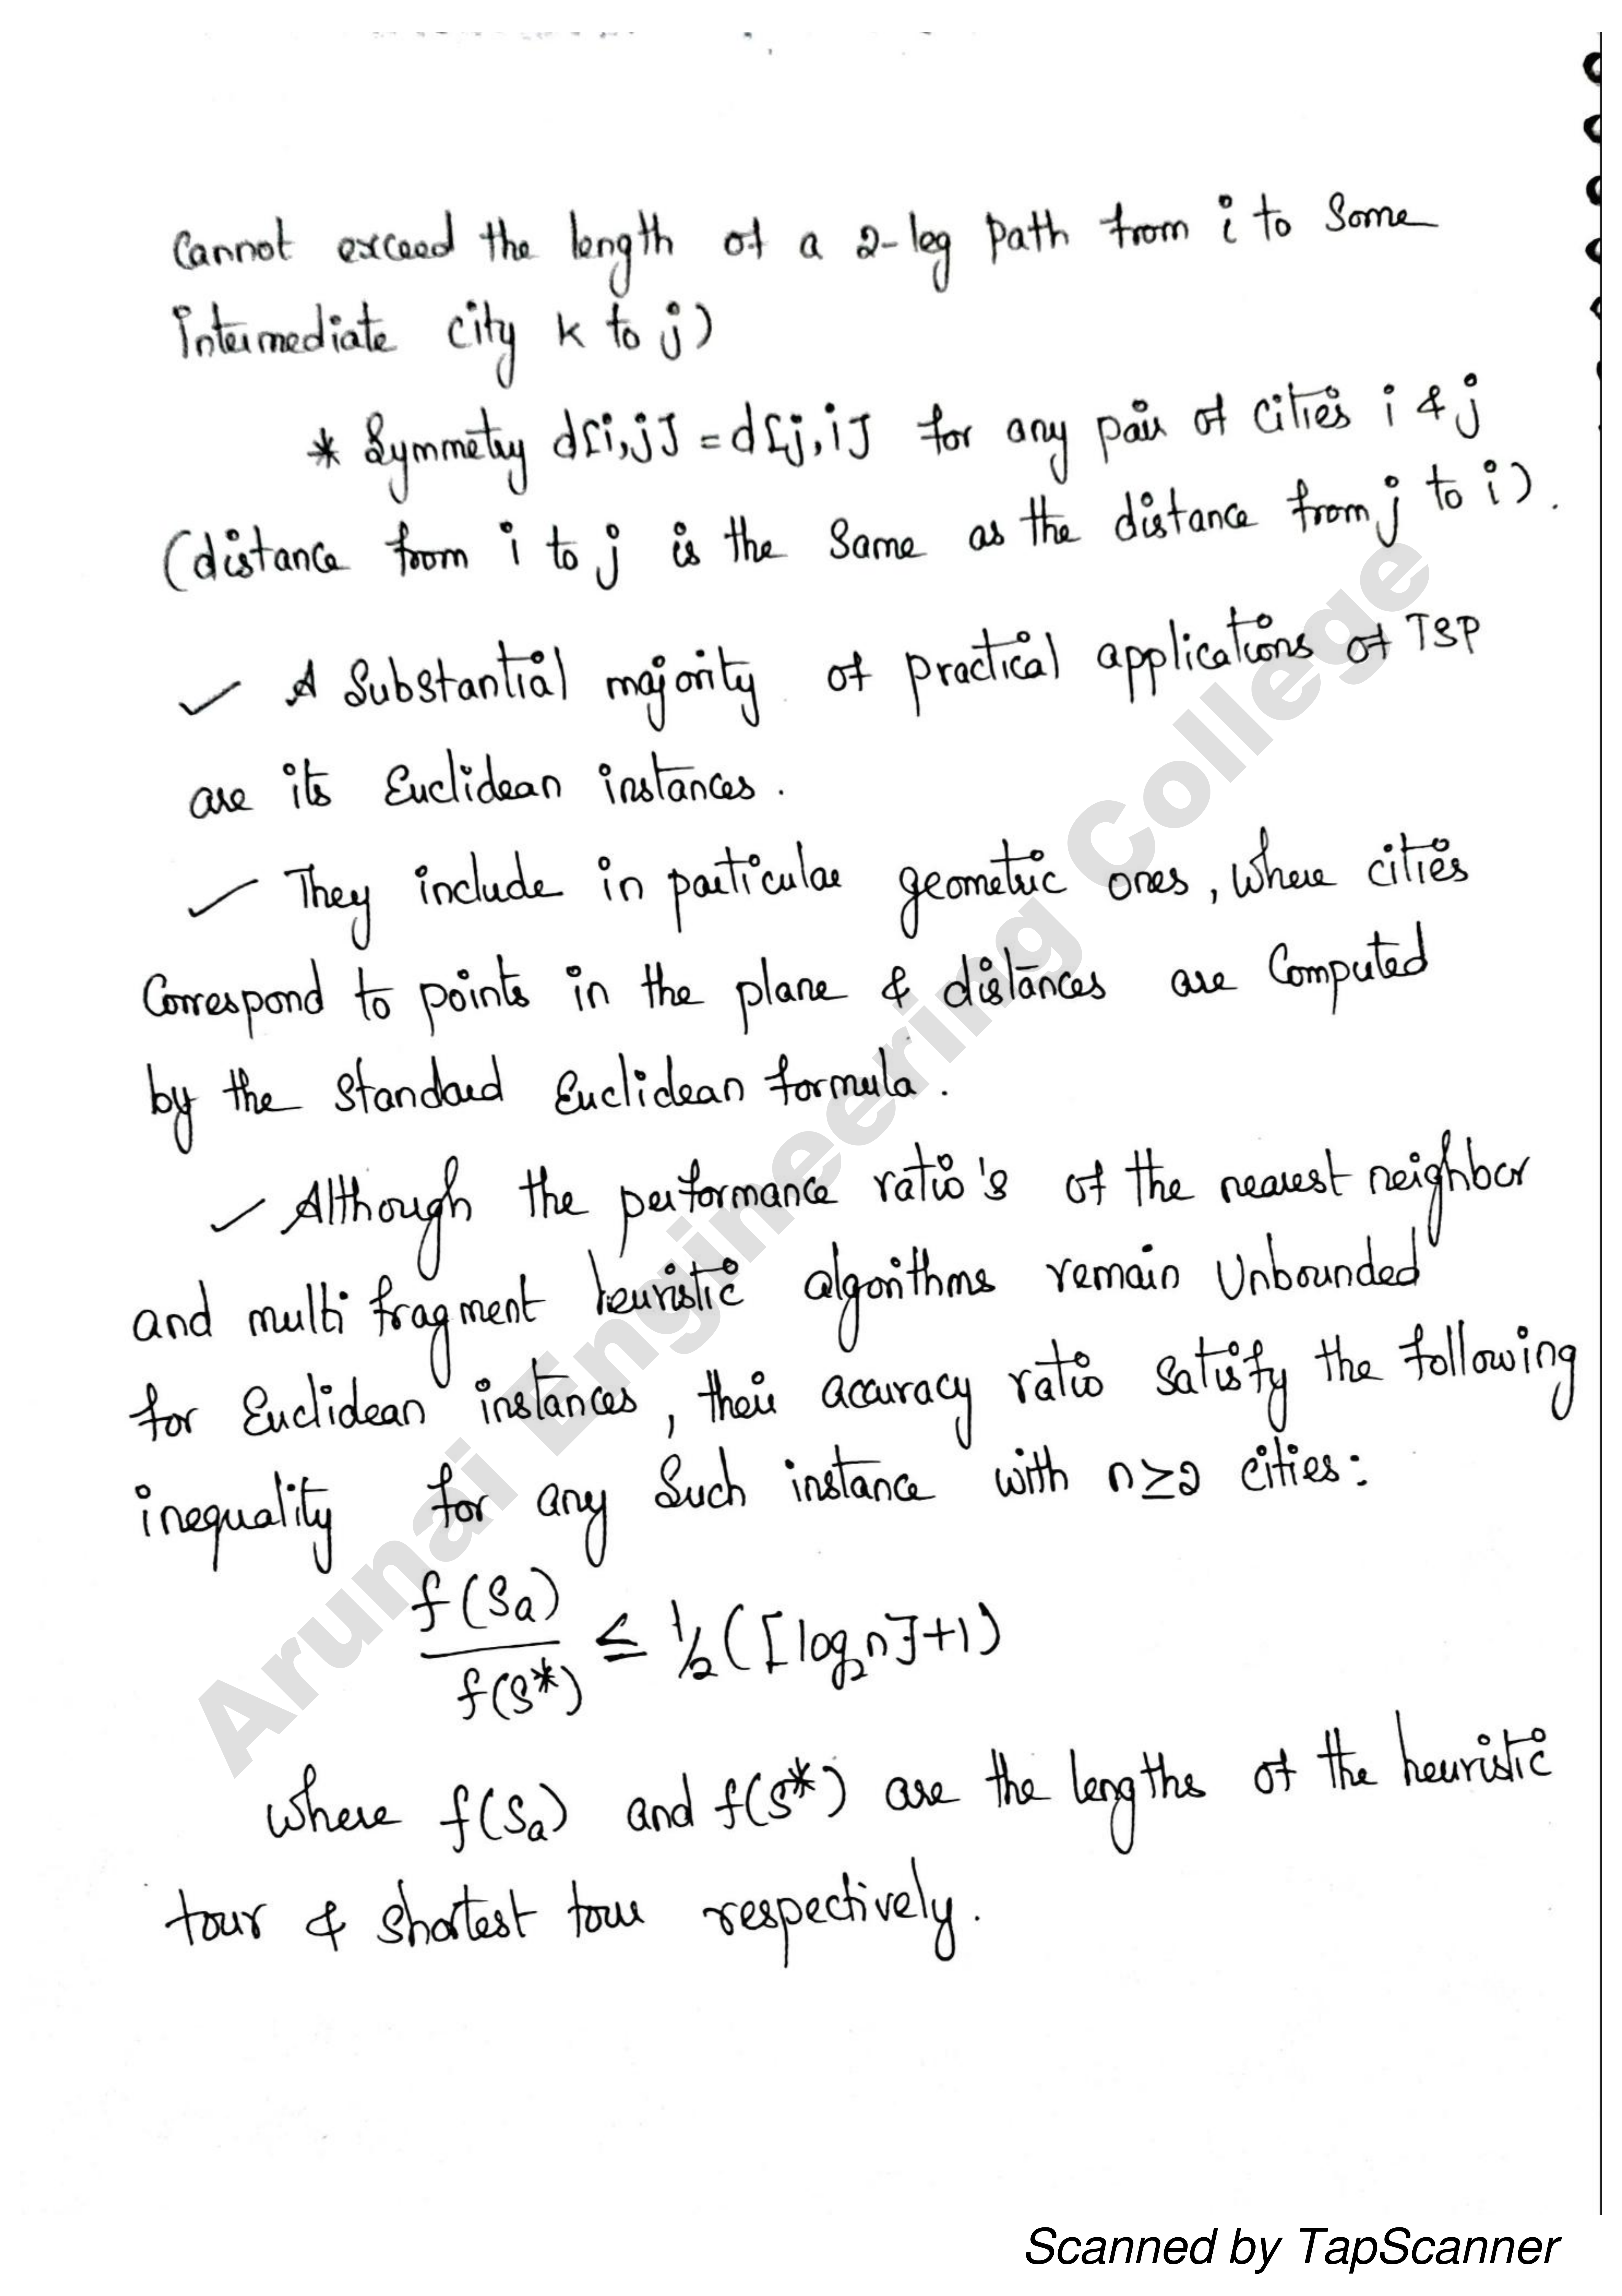 Cannot exceed the length of a 2-leg path from i to some
intermediate city k to j)
* Symmetry d[i,j] = d[j,i] for any pair of cities i & j
(distance from i to j is the same as the distance from j to i).
✓ A Substantial majority of practical applications of TSP
are its Euclidean instances.
✓ They include in particular geometric ones, where cities
Correspond to points in the plane & distances are Computed
by the standard Euclidean formula.
✓ Although the performance ratio's of the nearest neighbor
and multi fragment heuristic algorithms remain Unbounded
for Euclidean instances, their accuracy ratio satisfy the following
inequality for any Such instance with n≥2 cities:
f(Sa)/f(S*) ≤ 1/2([log₂n]+1)
where f(Sa) and f(S*) are the lengths of the heuristic
tour & shortest tour respectively.
Arunai Engineering College
Scanned by TapScanner